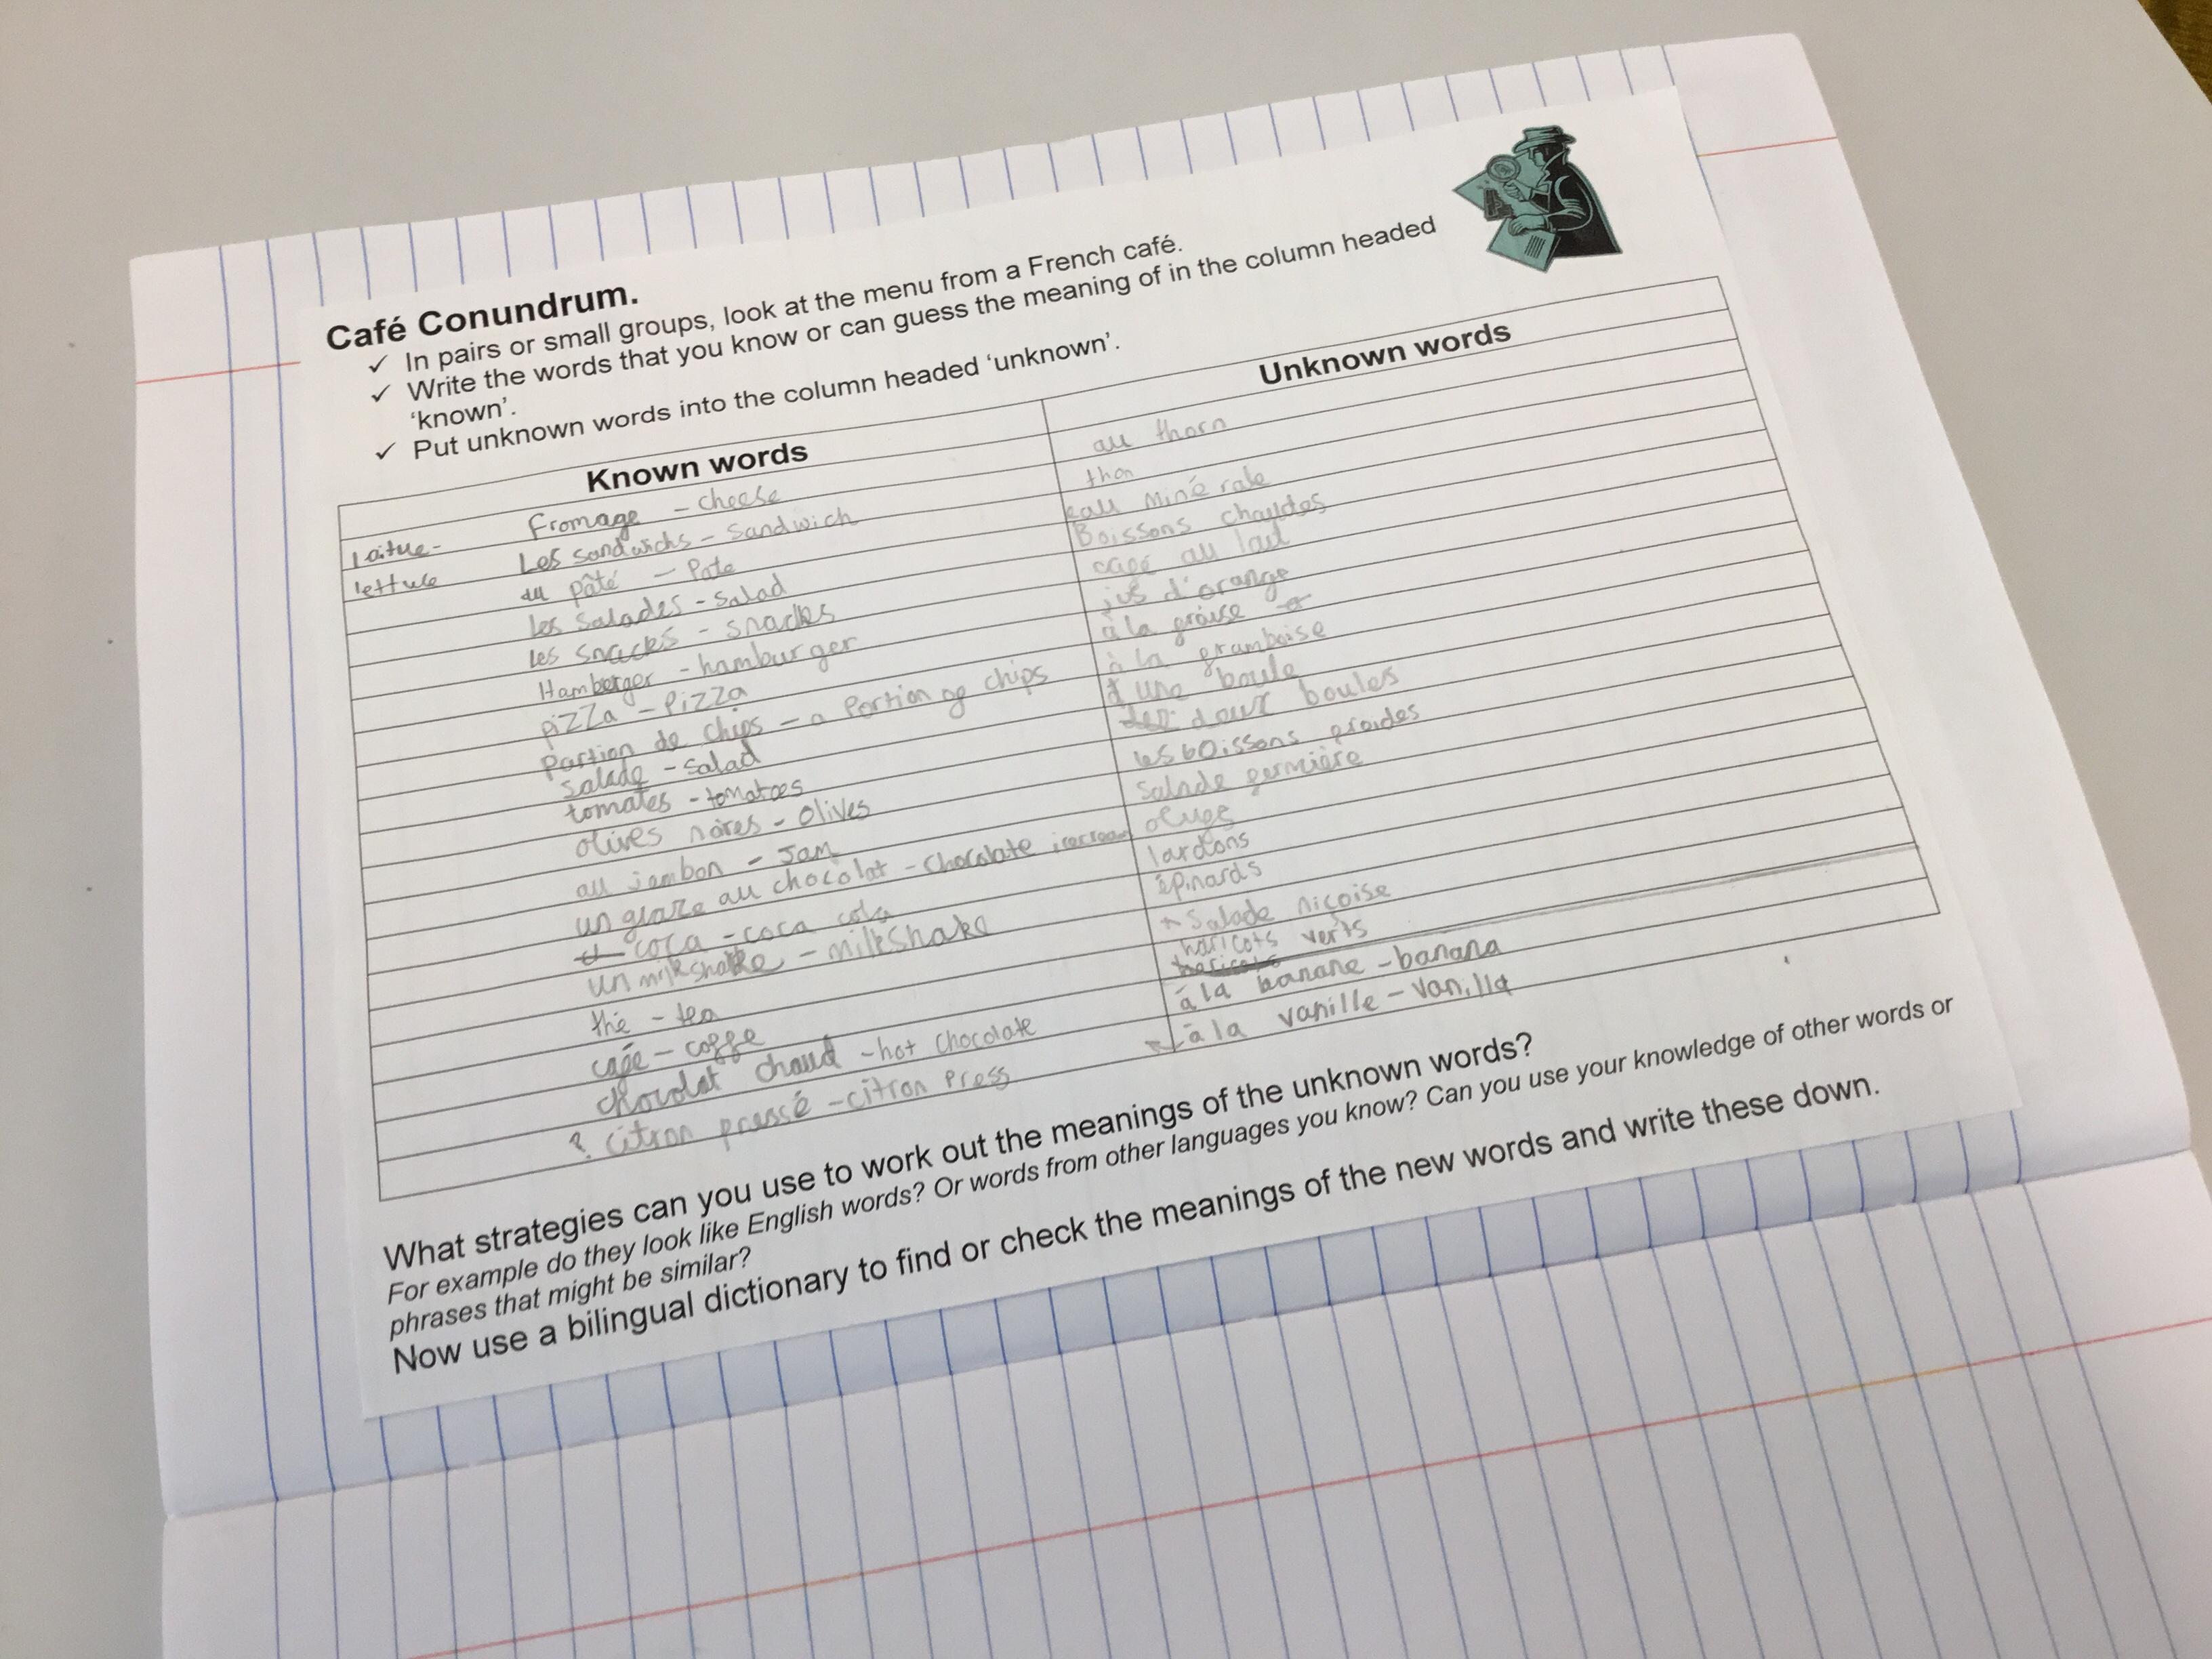 Café Conundrum.
✓ In pairs or small groups, look at the menu from a French café.
✓ Write the words that you know or can guess the meaning of in the column headed
‘known’.
✓ Put unknown words into the column headed ‘unknown’.
Known words
Fromage - cheese
Laitue-
lettuce
Les sandwichs - Sandwich
au pâté - Pate
les salades - salad
les snacks - snacks
Hamberger - hamburger
pizza - Pizza
portion de chips - a Portion of chips
salade - salad
tomates - tomatoes
olives noires - Olives
au jambon - Jam
un glaze au chocolat - chocolate icecream
coca - coca cola
un milkshake - milkshake
thé - tea
café - coffe
chocolat chaud - hot chocolate
? citron pressé - citron Press
Unknown words
au thorn
thon
eau minérale
Boissons chaudes
café au lait
jus d'orange
à la fraise
à la framboise
une boule
deux boules
les boissons froides
Salade fermière
oeufs
lardons
épinards
Salade niçoise
haricots verts
haricots
à la banane - banana
à la vanille - Vanilla
What strategies can you use to work out the meanings of the unknown words?
For example do they look like English words? Or words from other languages you know? Can you use your knowledge of other words or
phrases that might be similar?
Now use a bilingual dictionary to find or check the meanings of the new words and write these down.